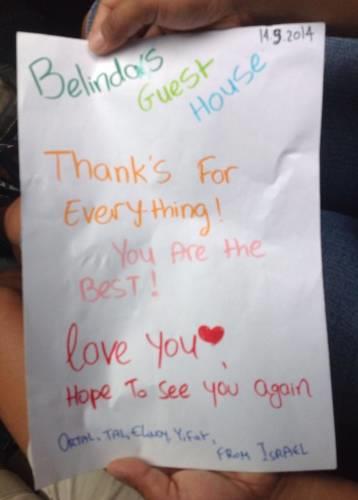 14.9.2014
Belinda's
Guest
House
Thank's For
Everything!
You Are the
BEST!
love you
Hope To See you again
ORTAL, TAL,
FROM ISRAEL